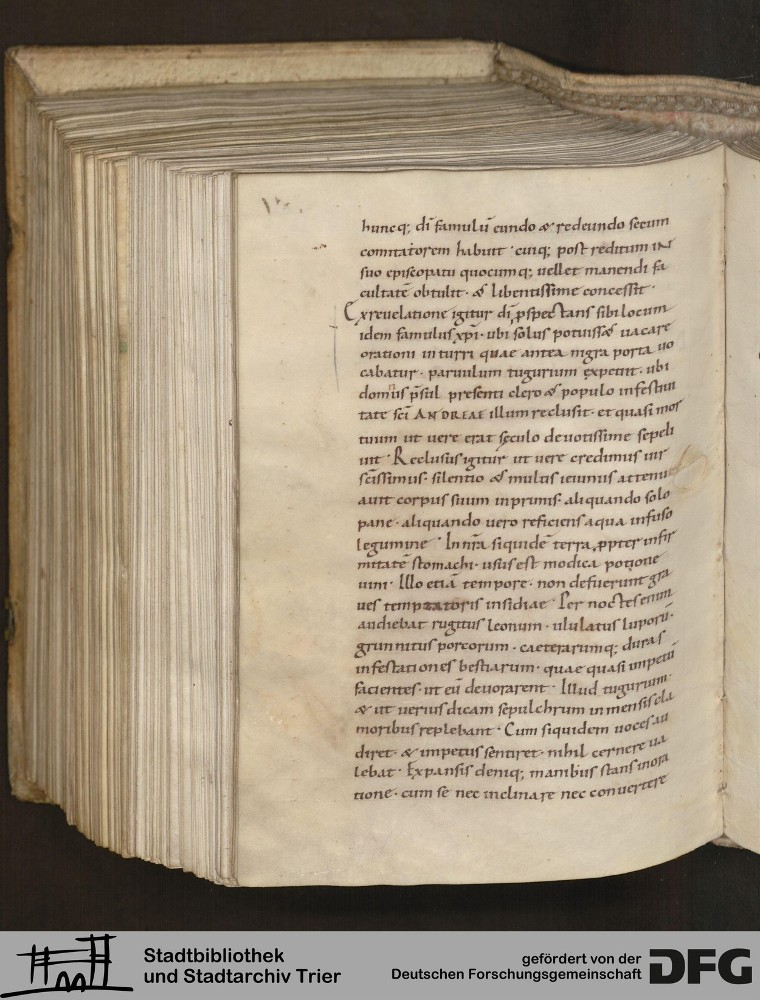 huncq; dī famulū eundo & redeundo secum
comitatorem habuit · cuiq; post reditum in
suo episcopatu quocumq; uellet manendi fa
cultatē obtulit · & libentissime concessit ·
Exreuelatione igitur dī pspectans sibi locum
idem famulus xpī · ubi solus potuisset uacare
orationi in turri quae antea nigra porta uo
cabatur · paruulum tugurium expetiit · ubi
domnus p̄sul presenti clero & populo in festiui
tate scī ANDREAE illum reclusit · et quasi mor
tuum ut uere erat sęculo deuotissime sepeli
uit · Reclusus igitur ut uere credimus uir
scīssimus · silentio & multis ieiuniis attenu
auit corpus suum inprimis · aliquando solo
pane · aliquando uero reficiens aqua infuso
legumine · In nrā siquidē terra ppter infir
mitatē stomachi · usus est modica potione
uini · Illo etiā tempore · non defuerunt gra
ues temptatoris insidiae · Per noctes enim
audiebat rugitus leonum · ululatus luporū ·
grunnitus porcorum · caeterarumq; duras
infestationes bestiarum · quae quasi impetū
facientes · ut eū deuorarent · Illud tugurium ·
& ut uerius dicam sepulchrum inmensis cla
moribus replebant · Cum siquidem uoces au
diret · & impetus sentiret · nihil cernere ua
lebat · Expansis deniq; manibus stans in ora
tione · cum se nec inclinare nec conuertere
Stadtbibliothek
und Stadtarchiv Trier
gefördert von der
Deutschen Forschungsgemeinschaft
DFG